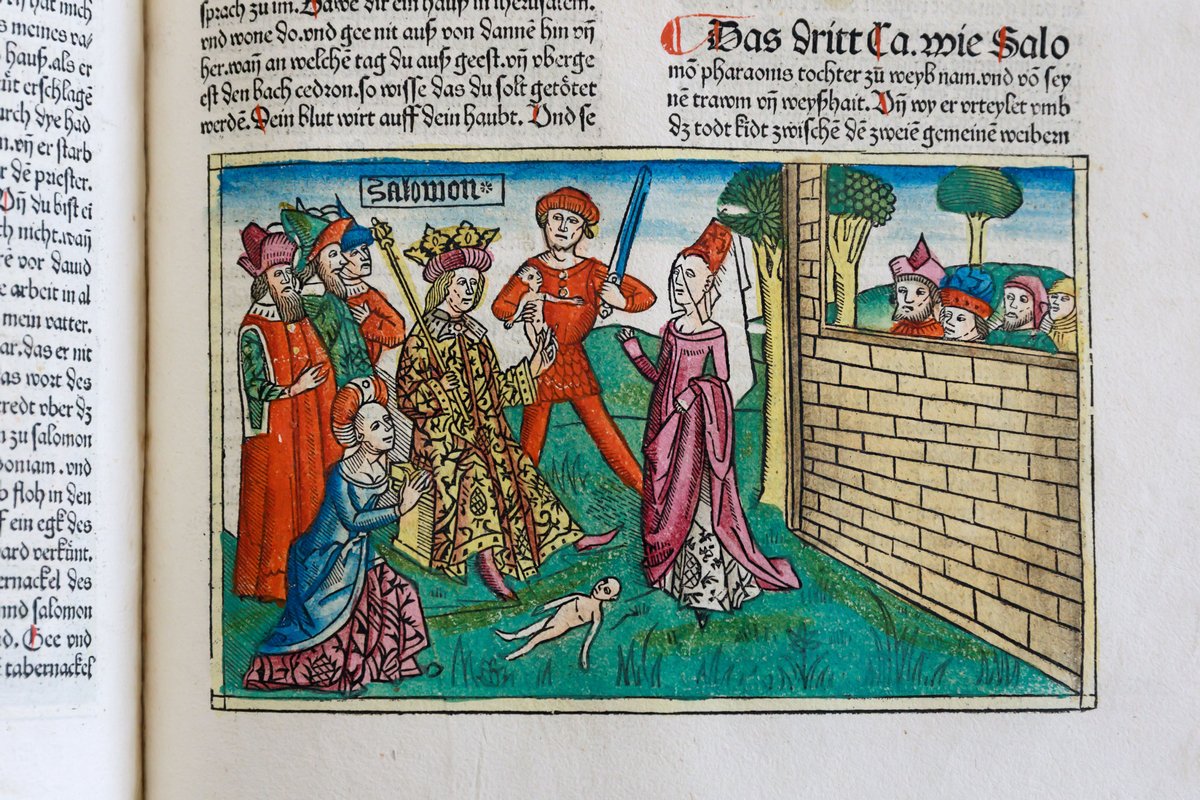 ñ hat mich
s meines va-
hauß.als er
ůt erschlagē
urch dye had
n.vñ er starb
r dē priester.
Vñ du bist ei
ch nicht.wañ
re vor dauid
e arbeit in al
mein vatter.
ar.das er nit
as wort des
redt vber dz
n zu salomon
doniam.vnd
b floh in den
f ein egk des
ard verkůnt.
ernackel des
nnd salomon
d. Gee vnd
tabernackel
sprach zu im. Bawe dir ein hauß in iherusalem.
vnd wone do.vnd gee nit auß von dannē hin vñ
her.wañ an welchē tag du auß geest.vñ vberge
est den bach cedron.so wisse das du solt getötet
werdē.Dein blut wirt auff dein haubt. Und se
Das dritt Ca.wie Salo
mō pharaonis tochter zů weyb nam.vnd vō sey
nē trawm vñ weyßhait. Vñ wy er vrteylet vmb
dz todt kidt zwischē dē zweiē gemeinē weibern
Salomon